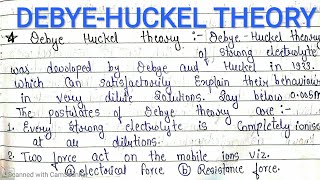 DEBYE-HUCKEL THEORY
4 Debye Huckel theory :- Debye-Huckel theory
of strong electrolyte
was developed by Debye and Huckel in 1923.
Which can satisfactorily Explain their behaviour
in very dilute solutions. Say below 0.005M
The postulates of Debye theory are:-
1. Every strong electrolyte is completely ionise
at all dilutions.
2. Two force act on the mobile ions viz.
ⓐ electrical force ⓑ Resistance force.
Scanned with Cam